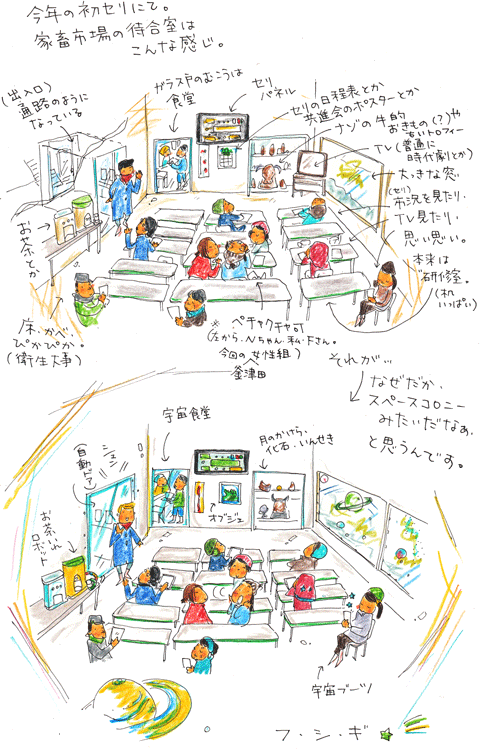 今年の初セリにて。
家畜市場の待合室は
こんな感じ。
(出入口)
通路のように
なっている
ガラス戸のむこうは
食堂
セリ
パネル
セリの日程表とか
共進会のポスターとか
ナゾの牛的
おきもの(?)や
ちいトロフィー
TV(普通に
時代劇とか)
大っきな窓
(セリ)
市況を見たり、
TV見たり、
思い思い。
本来は
研修室。
(机
いっぱい)
お茶とか
床、かべ、
ぴかぴか。
(衛生大事)
※ペチャクチャgi
(左から、Nちゃん、私、Fさん。
今回の女性組)
釜津田
それが…
なぜだか、
スペースコロニー
みたいだなぁ、
と思うんです。
宇宙食堂
月のかけら・
化石・いんせき
シュン
(自動ドア)
お茶いれ
ロボット
オブジェ
宇宙ブーツ
フ・シ・ギ